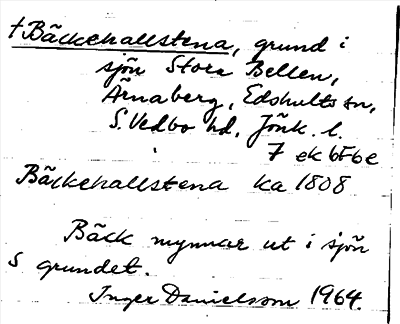 †Bäckehallstena, grund i
sjön Stora Bellen,
Ärnaberg, Edshults sn,
S. Vedbo hd, Jönk. l.
7 ek 6F6e
Bäckehallstena ka 1808
Bäck mynnar ut i sjön
S grundet.
Inger Danielsson 1964.